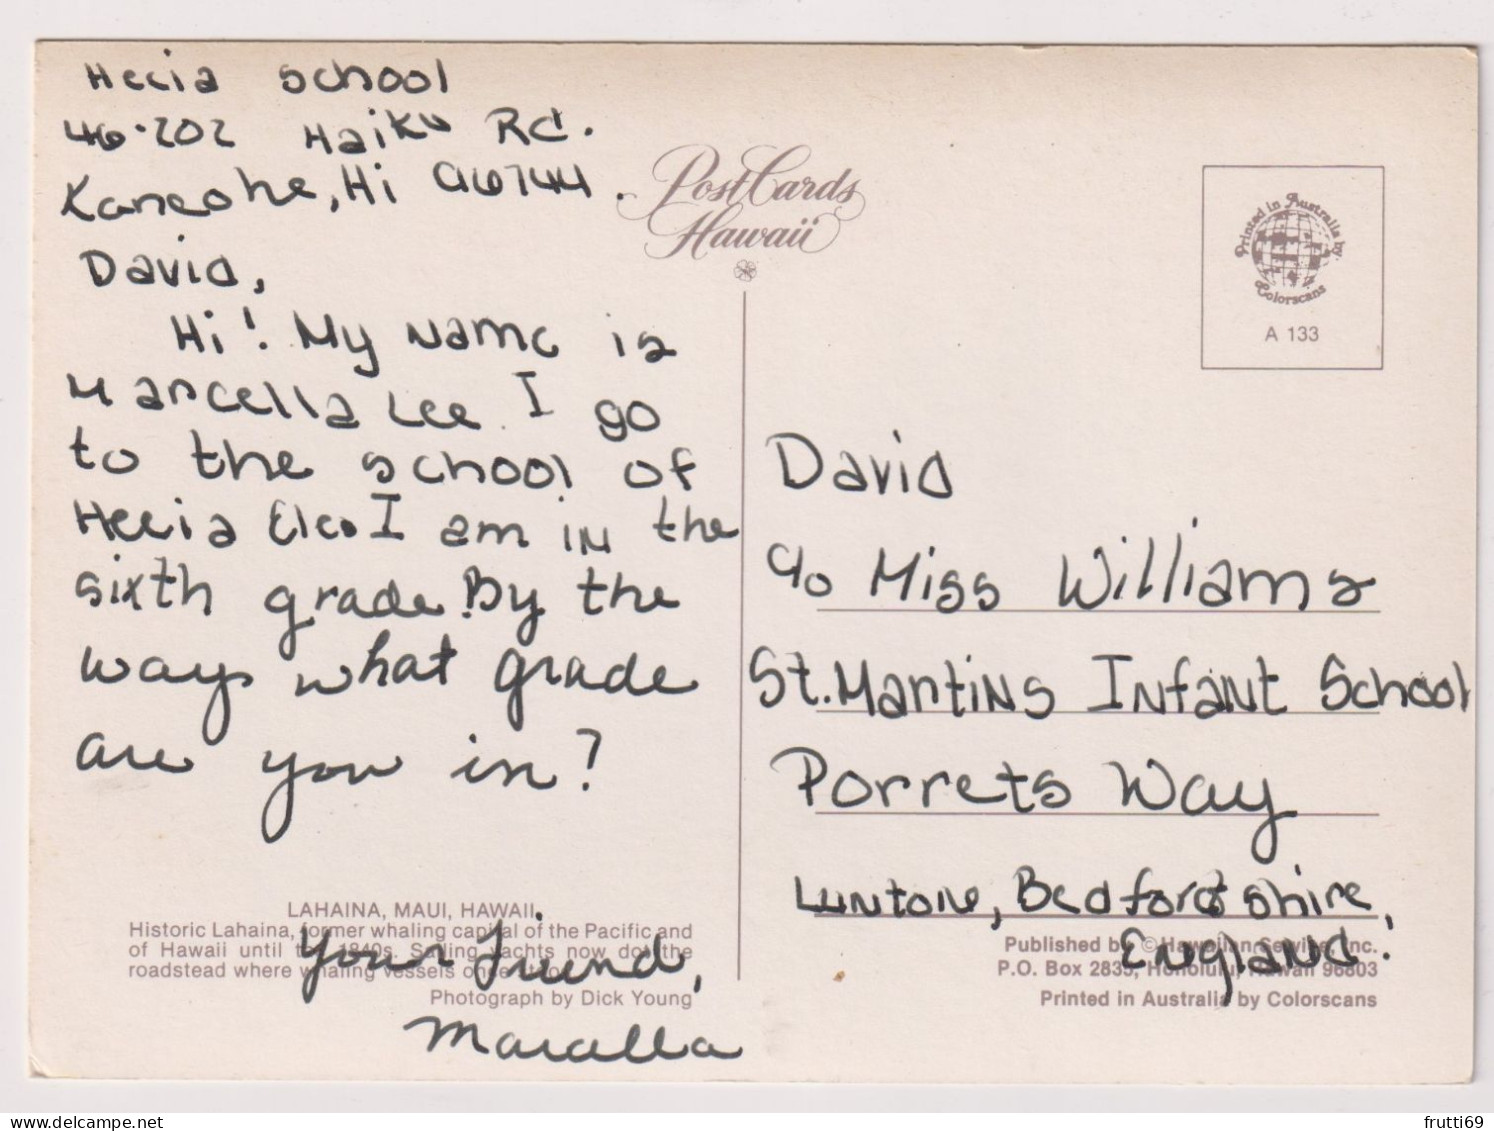 Heeia School
46-202 Haiku Rd.
Kaneohe, Hi 96744.
David,
Hi! My name is
Marcella Lee. I go
to the school of
Heeia Ele. I am in the
sixth grade. By the
ways what grade
are you in?
Your Friend,
Marcella
LAHAINA, MAUI, HAWAII.
Historic Lahaina, former whaling capital of the Pacific and
of Hawaii until the 1840s. Sailing yachts now dot the
roadstead where whaling vessels once stood.
Photograph by Dick Young
PostCards
Hawaii
Printed in Australia by
Colorscans
A 133
David
c/o Miss Williams
St. Martins Infant School
Porrets Way
Luntone, Bedfordshire,
England!
Published by © Hawaiian Service, Inc.
P.O. Box 2835, Honolulu, Hawaii 96803
Printed in Australia by Colorscans
frutti69